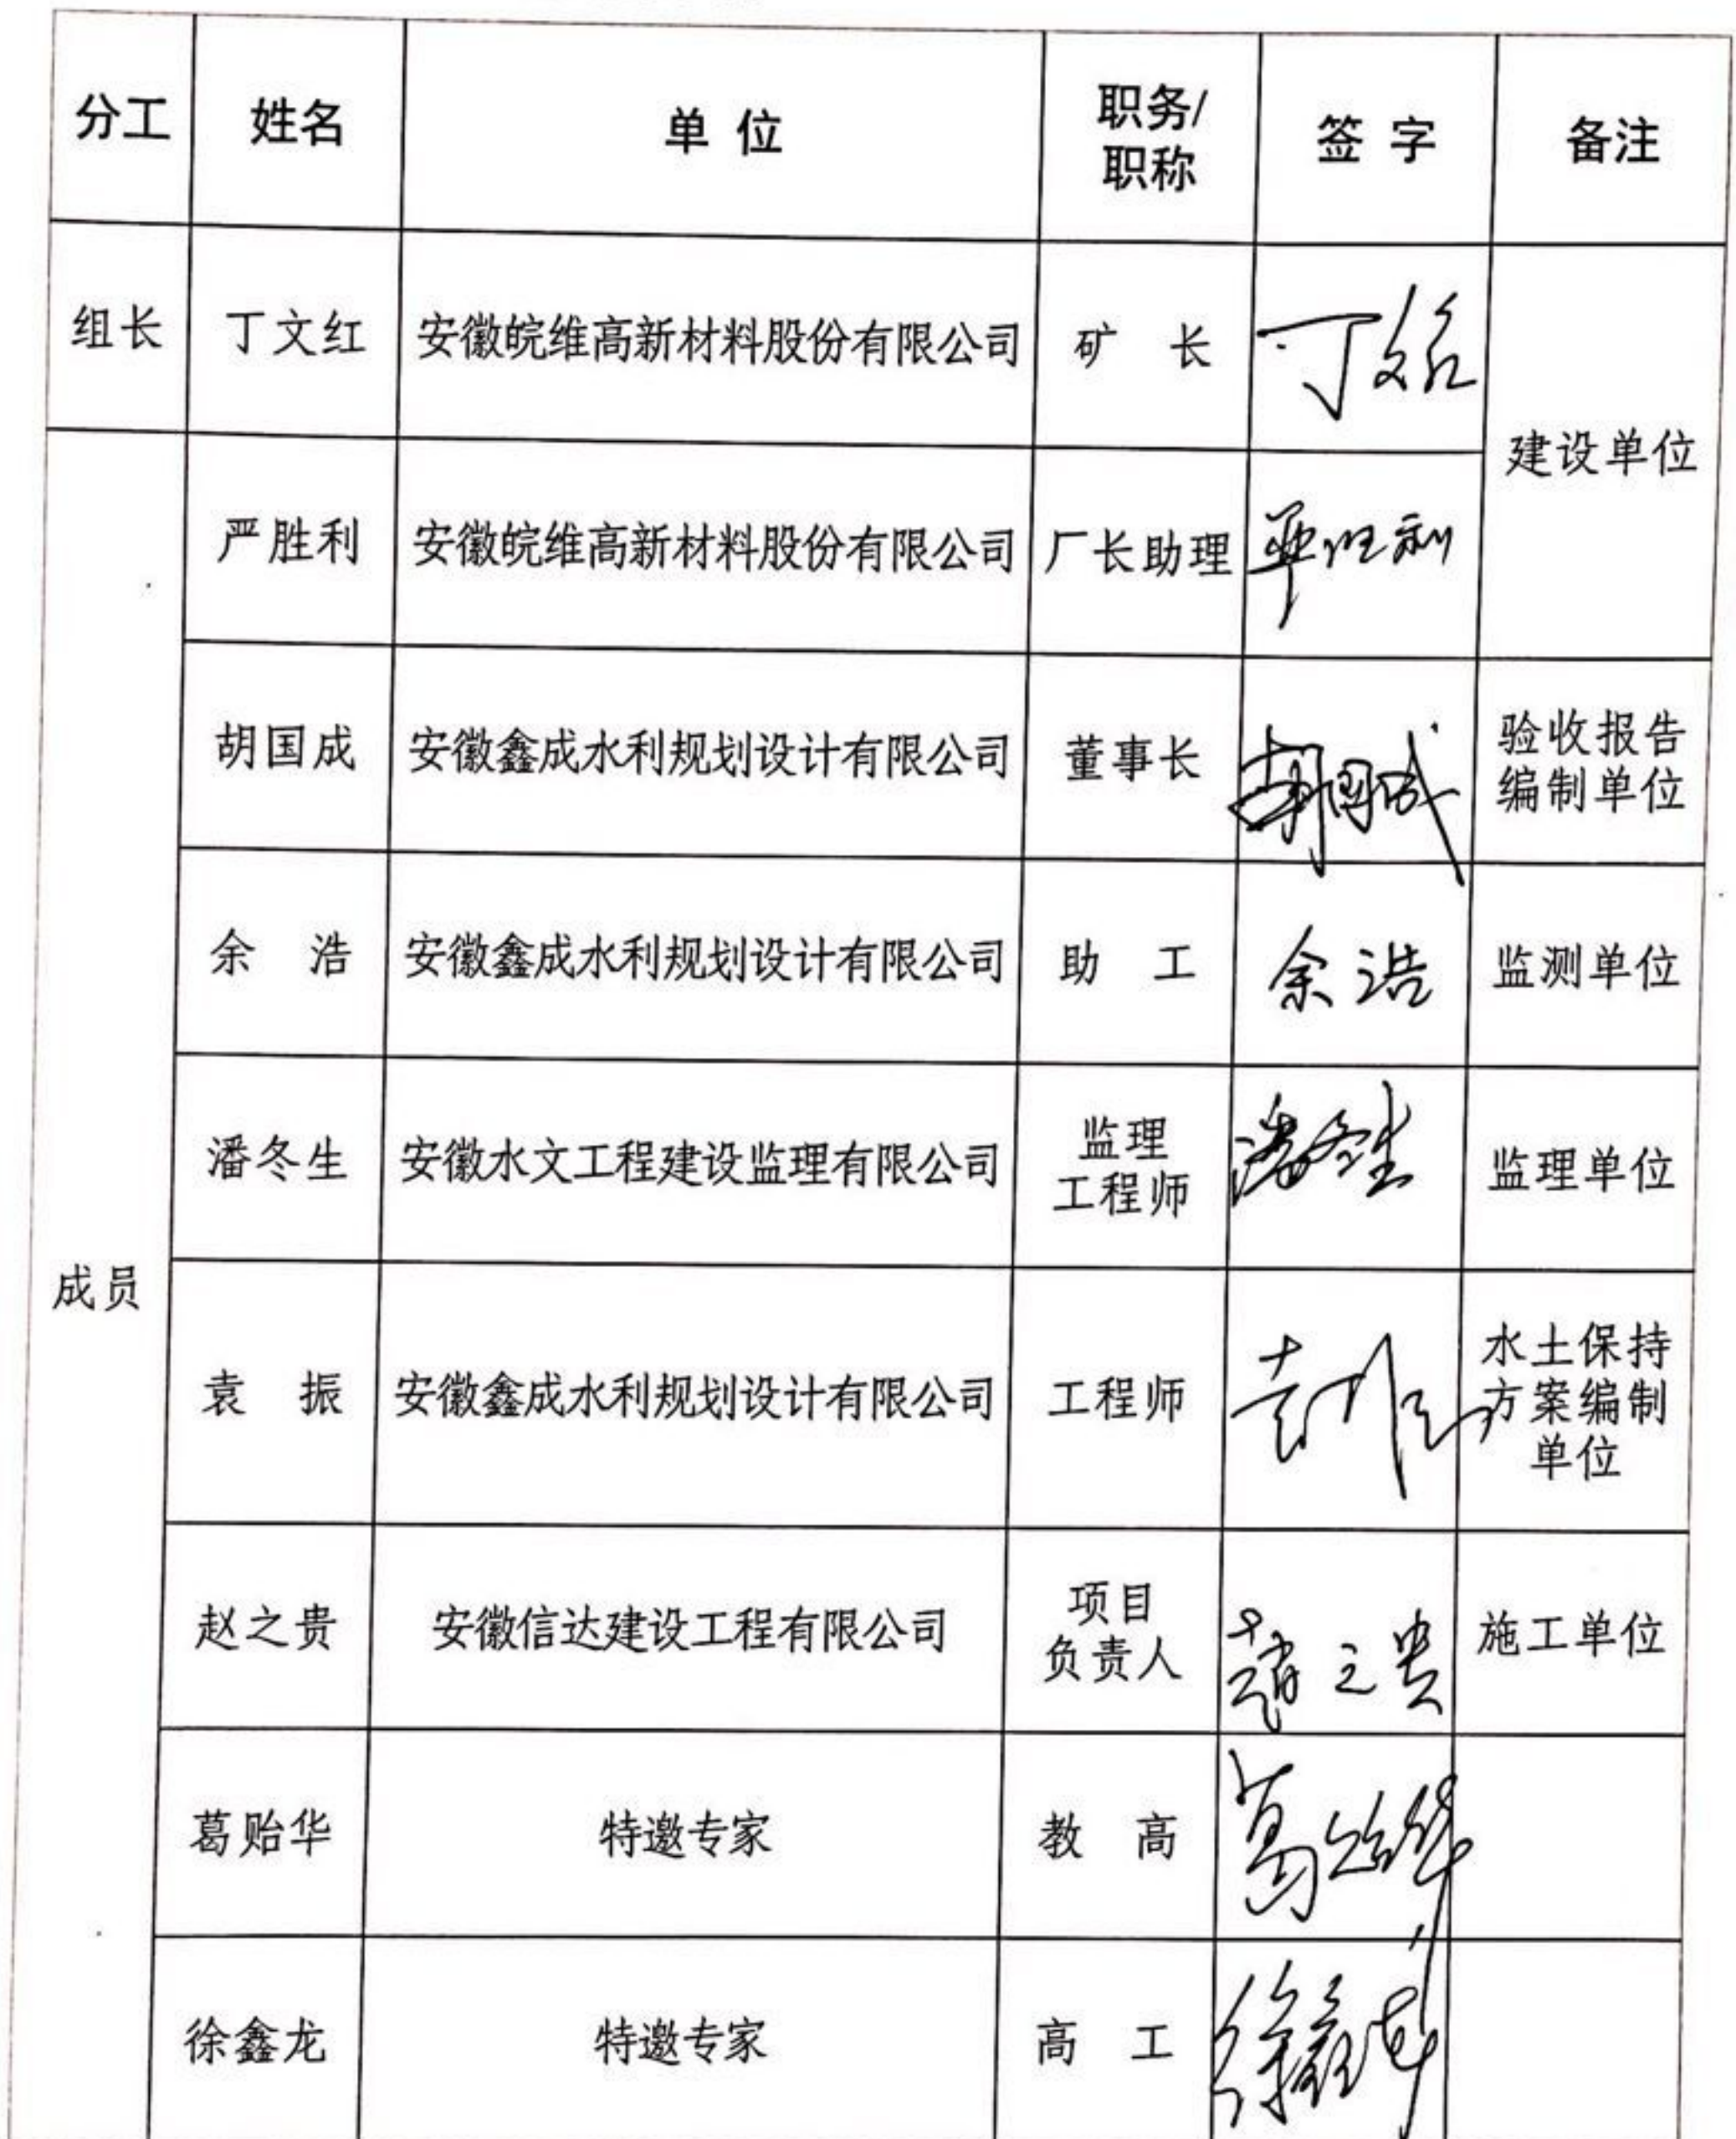 分工 姓名 单 位 职务/ 签 字 备注
职称
组长 丁文红 安徽皖维高新材料股份有限公司 矿 长 丁文红
建设单位
严胜利 安徽皖维高新材料股份有限公司 厂长助理 严胜利
胡国成 安徽鑫成水利规划设计有限公司 董事长 胡国成 验收报告
编制单位
余 浩 安徽鑫成水利规划设计有限公司 助 工 余浩 监测单位
潘冬生 安徽水文工程建设监理有限公司 监理 潘冬生 监理单位
工程师
成员
袁 振 安徽鑫成水利规划设计有限公司 工程师 袁振 水土保持
方案编制
单位
赵之贵 安徽信达建设工程有限公司 项目 赵之贵 施工单位
负责人
葛贻华 特邀专家 教 高 葛贻华
徐鑫龙 特邀专家 高 工 徐鑫龙